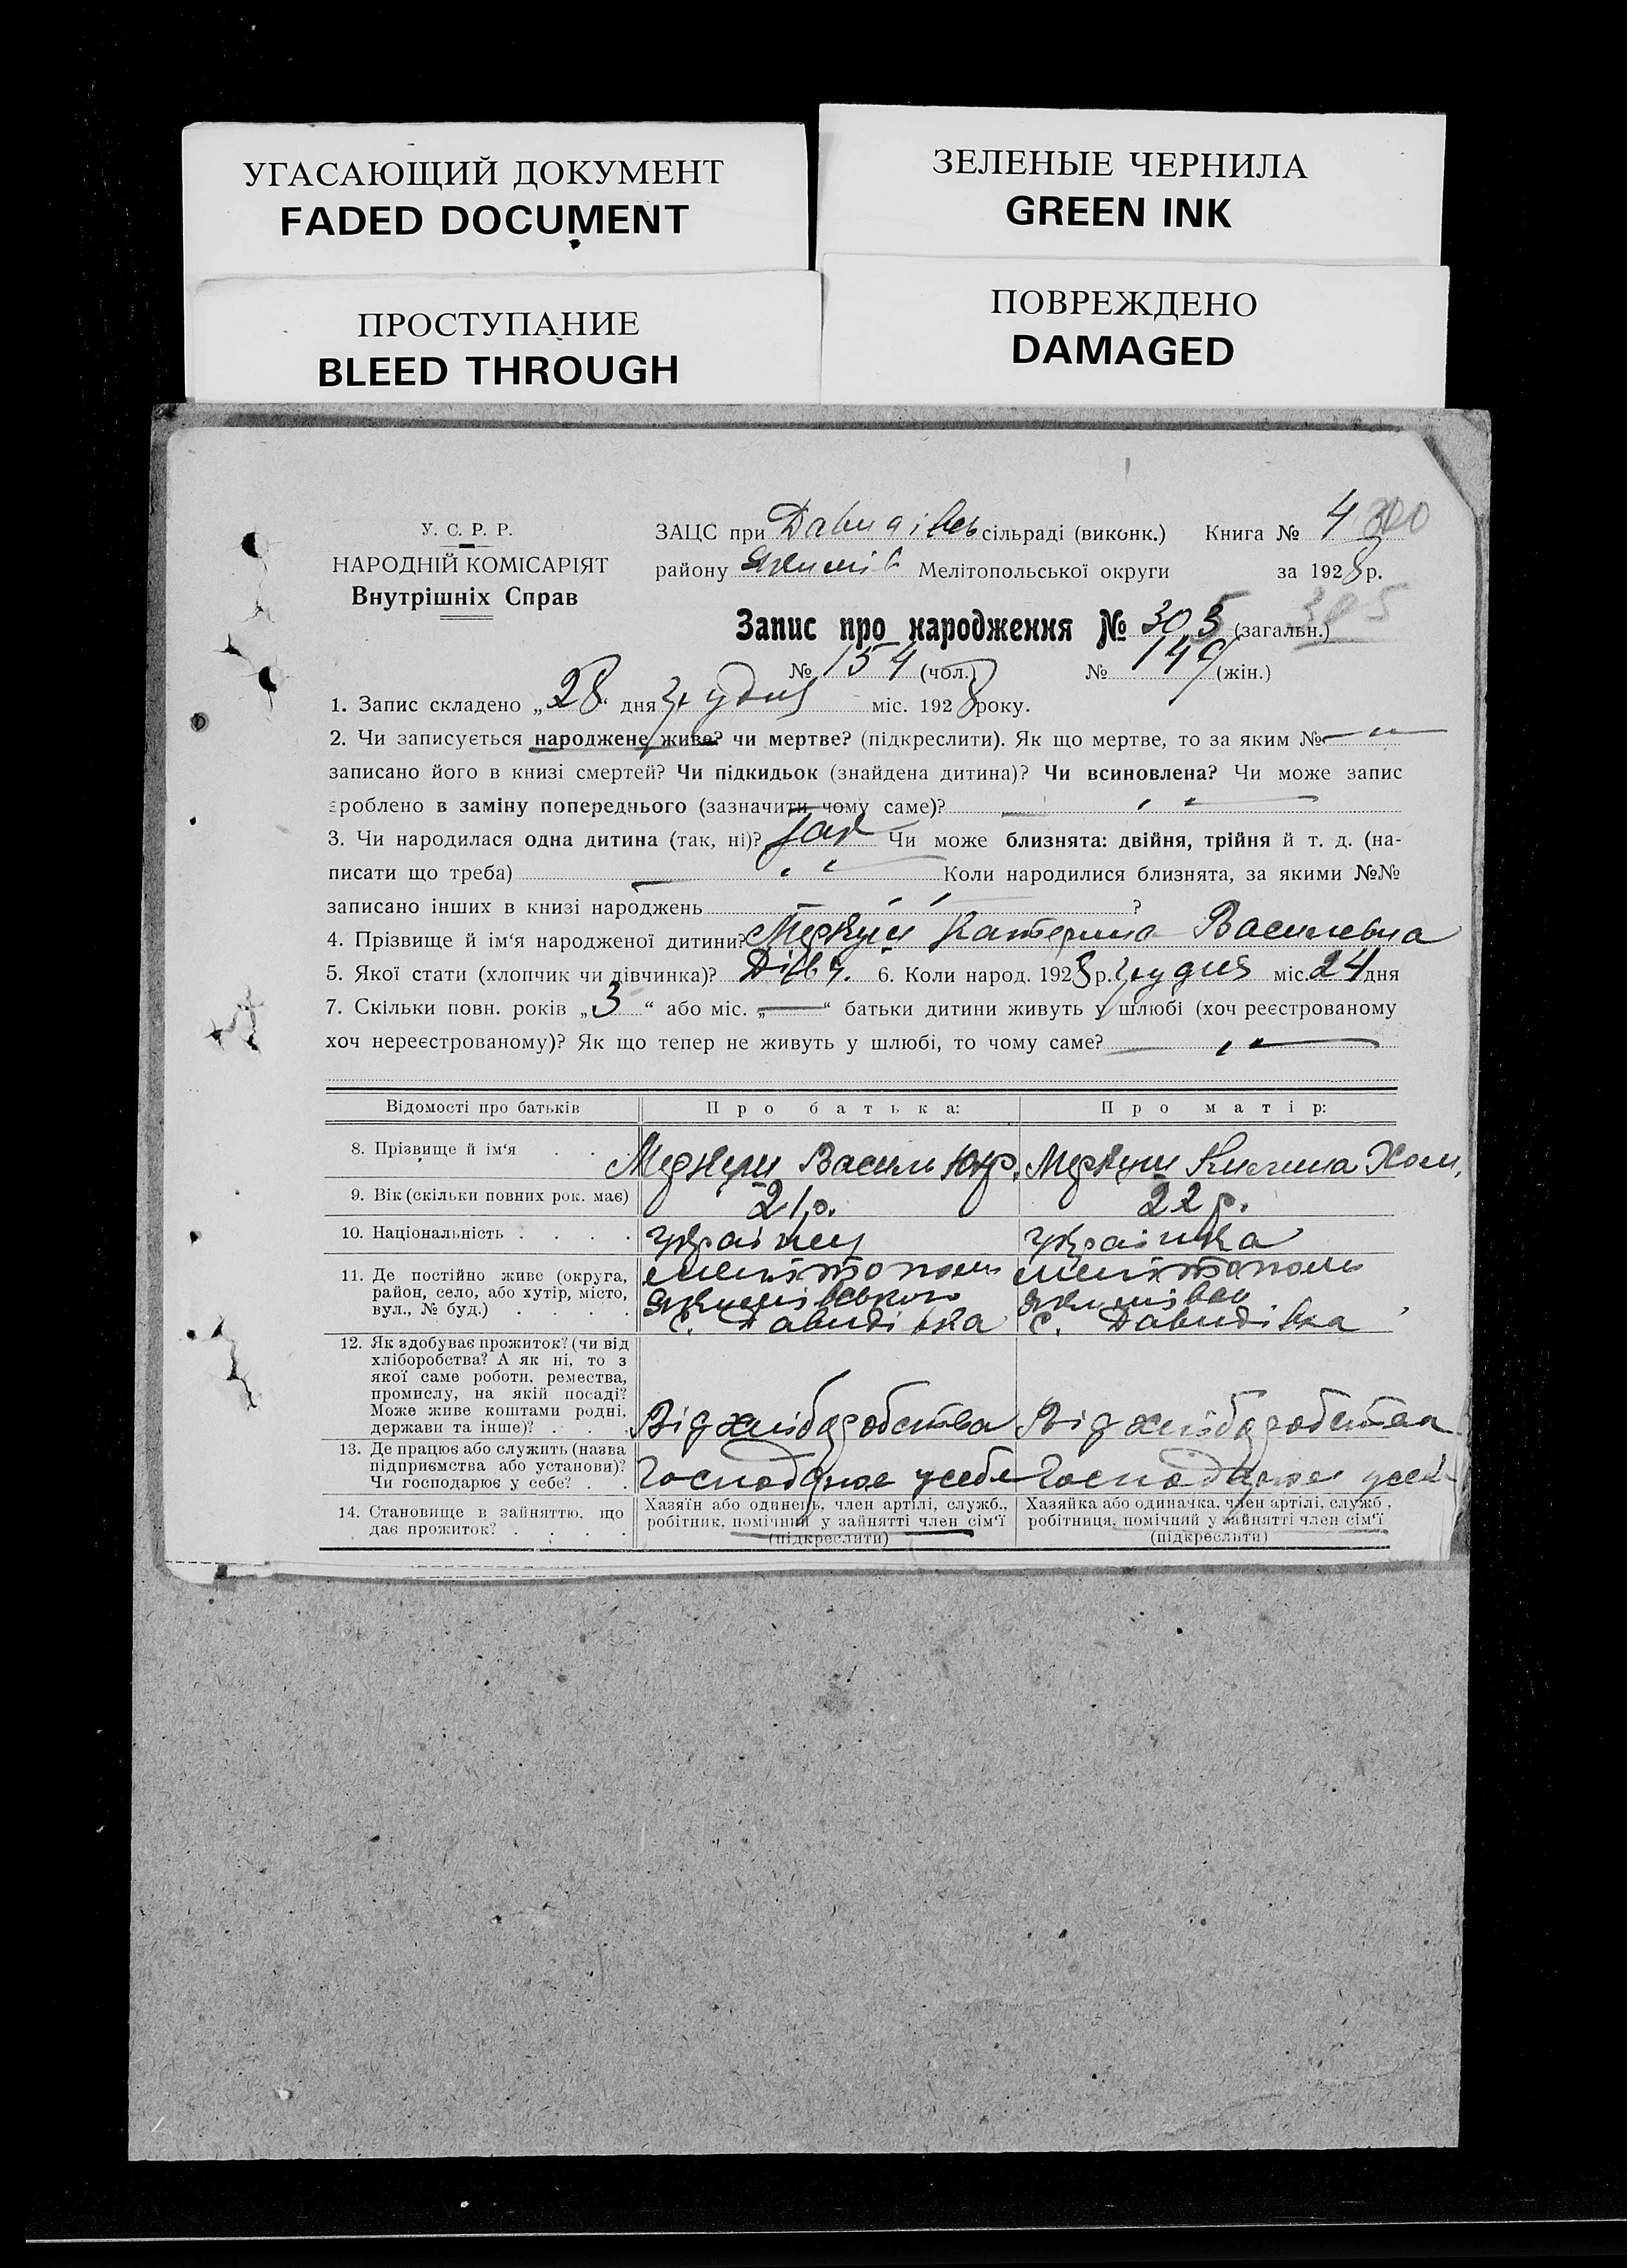 УГАСАЮЩИЙ ДОКУМЕНТ
FADED DOCUMENT
ЗЕЛЕНЫЕ ЧЕРНИЛА
GREEN INK
ПРОСТУПАНИЕ
BLEED THROUGH
ПОВРЕЖДЕНО
DAMAGED
У. С. Р. Р.
НАРОДНІЙ КОМІСАРІЯТ
Внутрішніх Справ
ЗАЦС при Давидівсь сільраді (виконк.) Книга № 4 300
району Якимів Мелітопольської округи за 1928 р.
Запис про народження № 305 (загальн.) 305
№ 154 (чол.) № 149 (жін.)
1. Запис складено „28“ дня грудня міс. 1928 року.
2. Чи записується народжене живе? чи мертве? (підкреслити). Як що мертве, то за яким №
записано його в книзі смертей? Чи підкидьок (знайдена дитина)? Чи всиновлена? Чи може запис
зроблено в заміну попереднього (зазначити чому саме)?
3. Чи народилася одна дитина (так, ні)? Так Чи може близнята: двійня, трійня й т. д. (на-
писати що треба) Коли народилися близнята, за якими №№
записано інших в книзі народжень ?
4. Прізвище й ім‘я народженої дитини? Катерина Василевна
5. Якої стати (хлопчик чи дівчинка)? Дівч. 6. Коли народ. 1928 р. грудня міс. 24 дня
7. Скільки повн. років „3“ або міс. „—“ батьки дитини живуть у шлюбі (хоч реєстрованому
хоч нереєстрованому)? Як що тепер не живуть у шлюбі, то чому саме?
Відомості про батьків
Про батька:
Про матір:
8. Прізвище й ім‘я
Василь
9. Вік (скільки повних рок. має)
21 р.
22 р.
10. Національність
Українец
Українка
11. Де постійно живе (округа,
район, село, або хутір, місто,
вул., № буд.)
Мелітополь
Якимівського
с. Давидівка
Мелітополь
Якимівсь
с. Давидівка
12. Як здобуває прожиток? (чи від
хліборобства? А як ні, то з
якої саме роботи, ремества,
промислу, на якій посаді?
Може живе коштами родні,
держави та інше)?
Від хліборобства
Від хліборобства
13. Де працює або служить (назва
підприємства або установи)?
Чи господарює у себе?
Господарює у себе
Господарює у себе
14. Становище в зайняттю, що
дає прожиток?
Хазяїн або одинець, член артілі, служб.,
робітник, помічний у зайнятті член сім‘ї
(підкреслити)
Хазяйка або одиначка, член артілі, служб.,
робітниця, помічний у зайнятті член сім‘ї
(підкреслити)